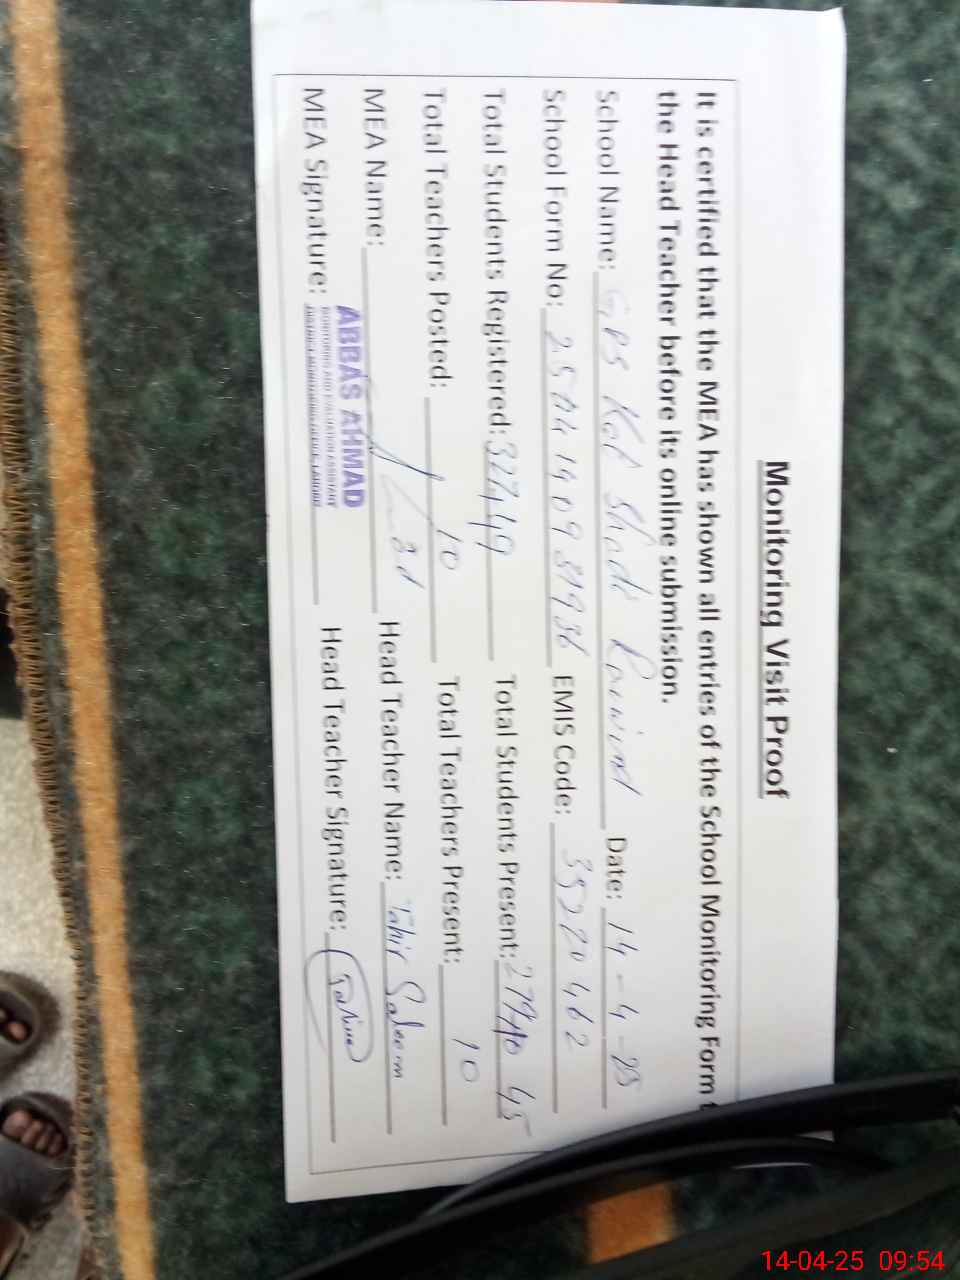 Monitoring Visit Proof
It is certified that the MEA has shown all entries of the School Monitoring Form
the Head Teacher before its online submission.
School Name: GPS Kot Shadi Date: 14-4-25
School Form No: EMIS Code: 35220462
Total Students Registered: Total Students Present:
Total Teachers Posted: 10 Total Teachers Present: 10
MEA Name: Head Teacher Name: Tahir Saleem
MEA Signature: Head Teacher Signature:
ABBAS AHMAD
MONITORING AND EVALUATION ASSISTANT
DISTRICT MONITORING OFFICE, LAHORE
14-04-25 09:54